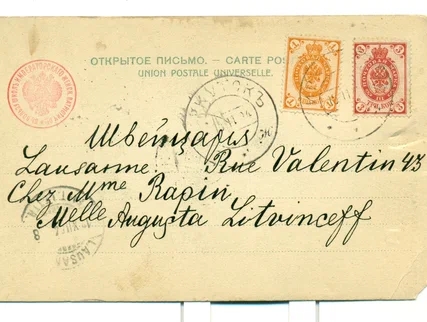 ОТКРЫТОЕ ПИСЬМО. — CARTE POS
UNION POSTALE UNIVERSELLE.
Швейцарія
Lausanne. Rue Valentin 43
Chez Mme Rapin
Melle Augusta Litvinceff